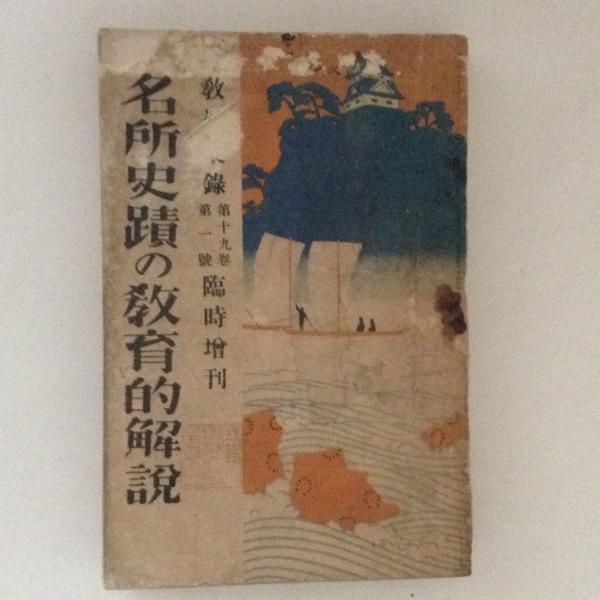 教
錄
第十九卷
第一號
臨時增刊
名所史蹟の教育的解說